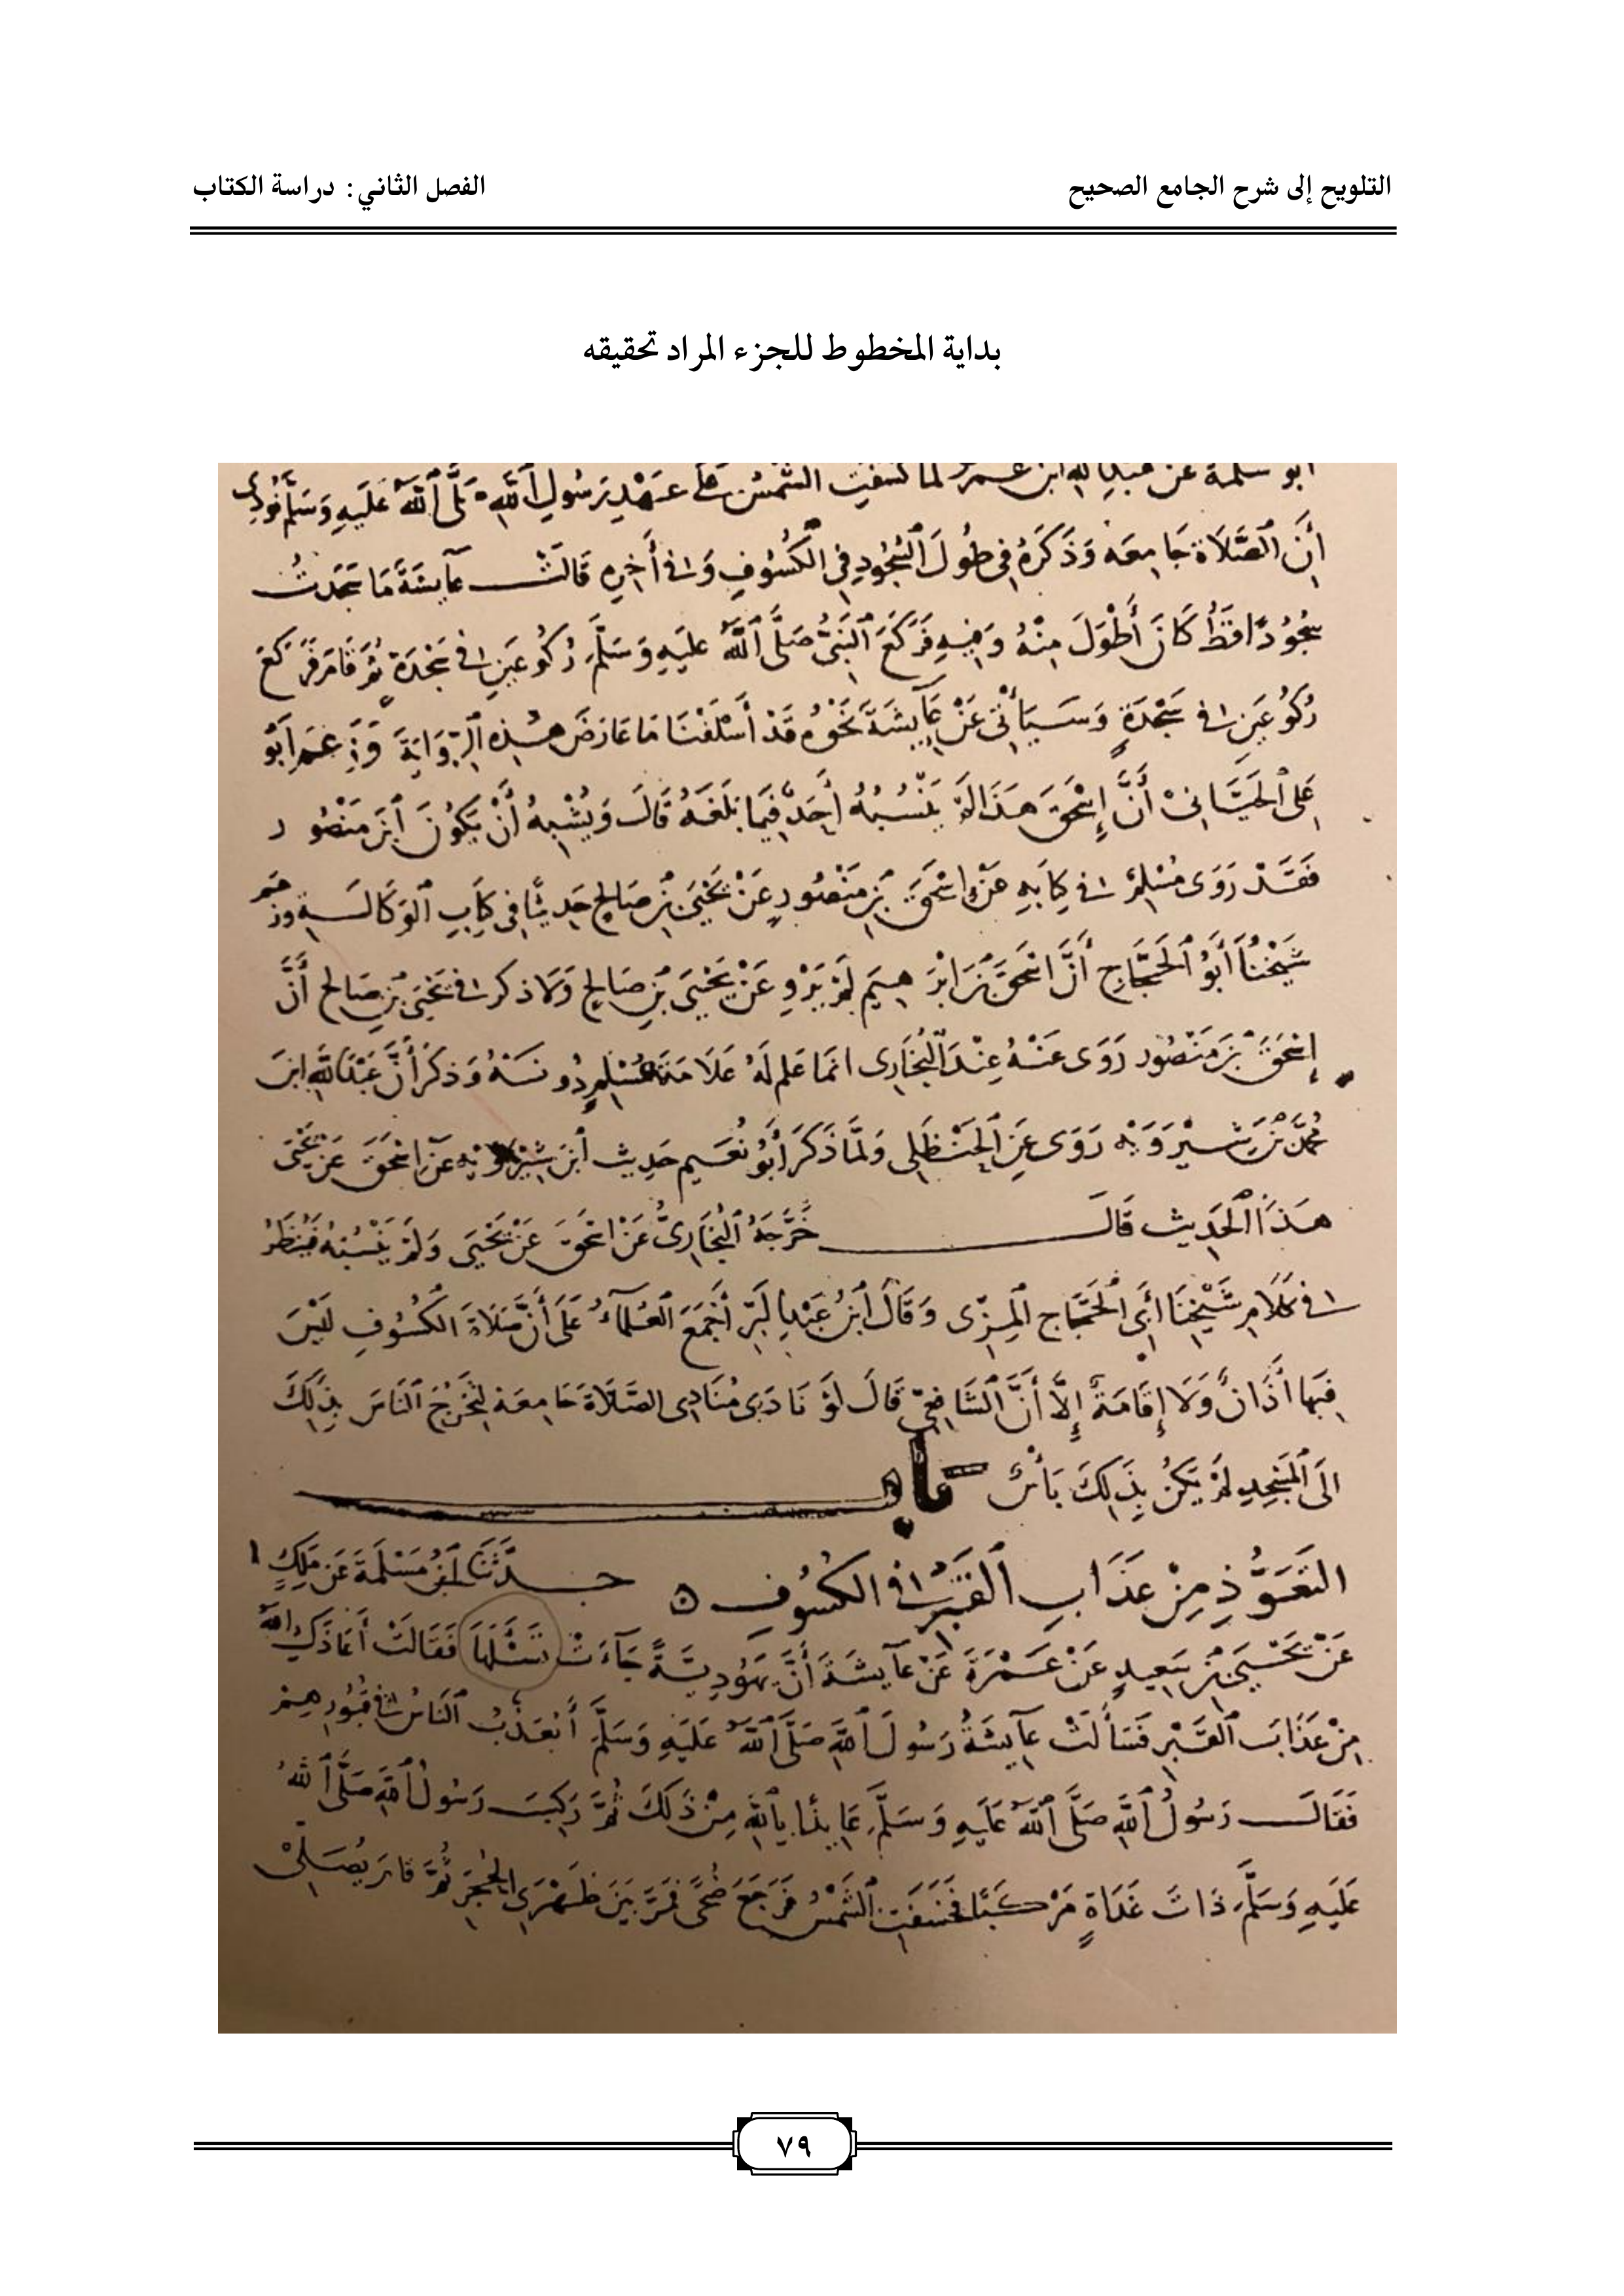 التلويح إلى شرح الجامع الصحيح
الفصل الثاني: دراسة الكتاب
بداية المخطوط للجزء المراد تحقيقه
أبو سلمة عن عبدالله ابن عمر لما كسفت الشمس على عهد رسول الله صلى الله عليه وسلم نودي
أن الصلاة جامعه وذكره في طول السجود في الكسوف وفي أخره قالت عايشة ما سجدت
سجودا قط كان أطول منه وفيه فركع النبي صلى الله عليه وسلم ركوعين في سجدة ثم قام فركع
ركوعين في سجدة وسيأتي عن عايشة نحوه قد أسلفنا ما عارض هذه الرواية وزعم أبو
علي الجياني أن إسحق هذا لم ينسبه أحد فيما بلغه قال ويشبه أن يكون ابن منصور
فقد روى مسلم في كتابه عن إسحق بن منصور عن يحيى بن صالح حديثا في كتاب الوكالة وزعم
شيخنا أبو الحجاج أن اسحق بن ابرهيم لم يرو عن يحيى بن صالح ولا ذكر في يحيى بن صالح أن
إسحق بن منصور روى عنه عند البخاري انما علم له علامة مسلم دونه وذكر أن عبدالله ابن
محمد بن شيرويه روى عن الحنظلي ولما ذكر أبو نعيم حديث ابن شيرويه عن اسحق عن يحيى
هذا الحديث قال خرجه البخاري عن اسحق عن يحيى ولم ينسبه فينظر
في كلام شيخنا أبي الحجاج المزي وقال ابن عبدالبر أجمع العلماء على أن صلاة الكسوف ليس
فيها أذان ولا إقامة إلا أن الشافعي قال لو نادى منادي الصلاة جامعة لتخرج الناس بذلك
الى المسجد لم يكن بذلك بأس باب
التعوذ من عذاب القبر في الكسوف حدثنا ابن مسلمة عن ملك
عن يحيى بن سعيد عن عمرة عن عايشة أن يهودية جاءت تسئلها فقالت أعاذك الله
من عذاب القبر فسألت عايشة رسول الله صلى الله عليه وسلم أيعذب الناس في قبورهم
فقال رسول الله صلى الله عليه وسلم عايذا بالله من ذلك ثم ركب رسول الله صلى الله
عليه وسلم ذات غداة مركبا فخسفت الشمس فرجع ضحى فمر بين ظهري الحجر ثم قام يصلي
٧٩